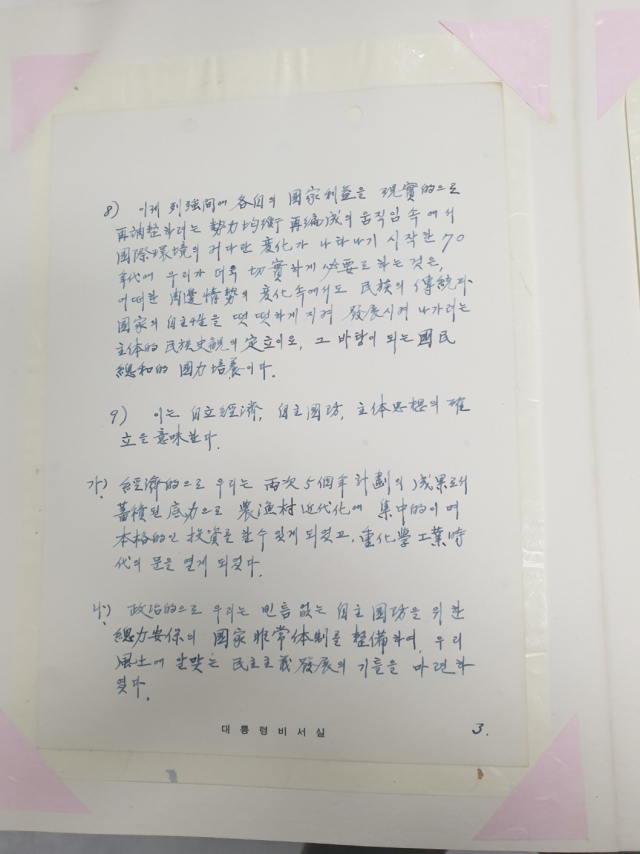 8) 이제 列强間에 各自의 國家利益을 現實的으로
再調整하려는 勢力均衡 再編成의 움직임 속에서
國際環境의 커다란 変化가 나타나기 시작한 70
年代에 우리가 더욱 切實하게 必要로 하는 것은,
어떠한 周邊情勢의 変化 속에서도 民族의 傳統과
國家의 自主性을 떳떳하게 지켜 發展시켜 나가려는
主体的 民族史観의 定立이오, 그 바탕이 되는 國民
總和的 國力培養이다.
9) 이는 自立経済, 自主国防, 主体思想의 確
立을 意味한다.
가) 経済的으로 우리는 両次 5個年 計劃의 成果로서
蓄積된 底力으로 農漁村 近代化에 集中的이며
本格的인 投資를 할 수 있게 되었고, 重化學工業時
代의 문을 열게 되었다.
나) 政治的으로 우리는 빈틈없는 自主国防을 위한
總力安保의 國家非常体制를 整備하여, 우리
風土에 알맞는 民主主義發展의 기틀을 마련하
였다.
대통령비서실
3.